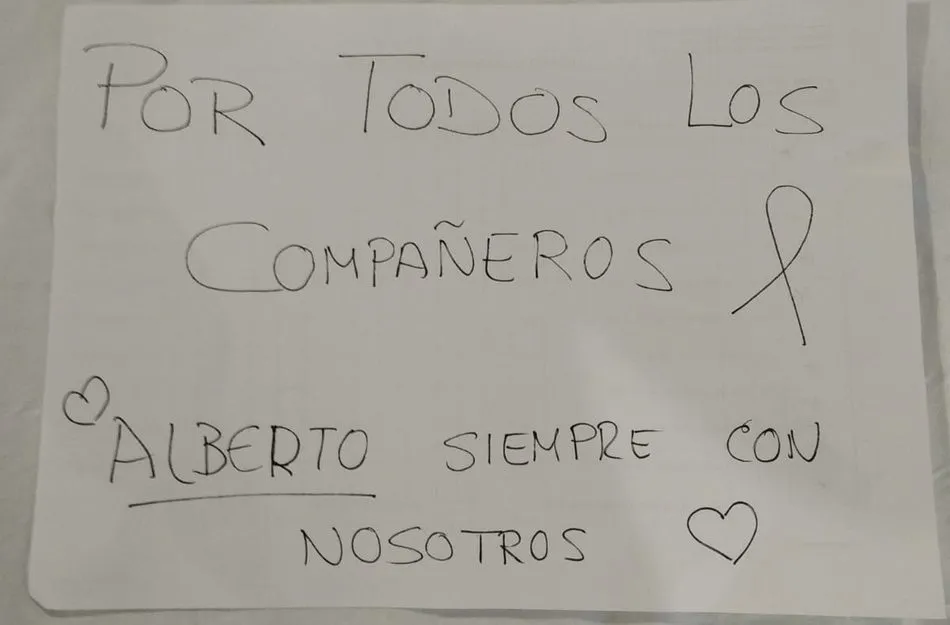 POR TODOS LOS
COMPAÑEROS
ALBERTO SIEMPRE CON
NOSOTROS